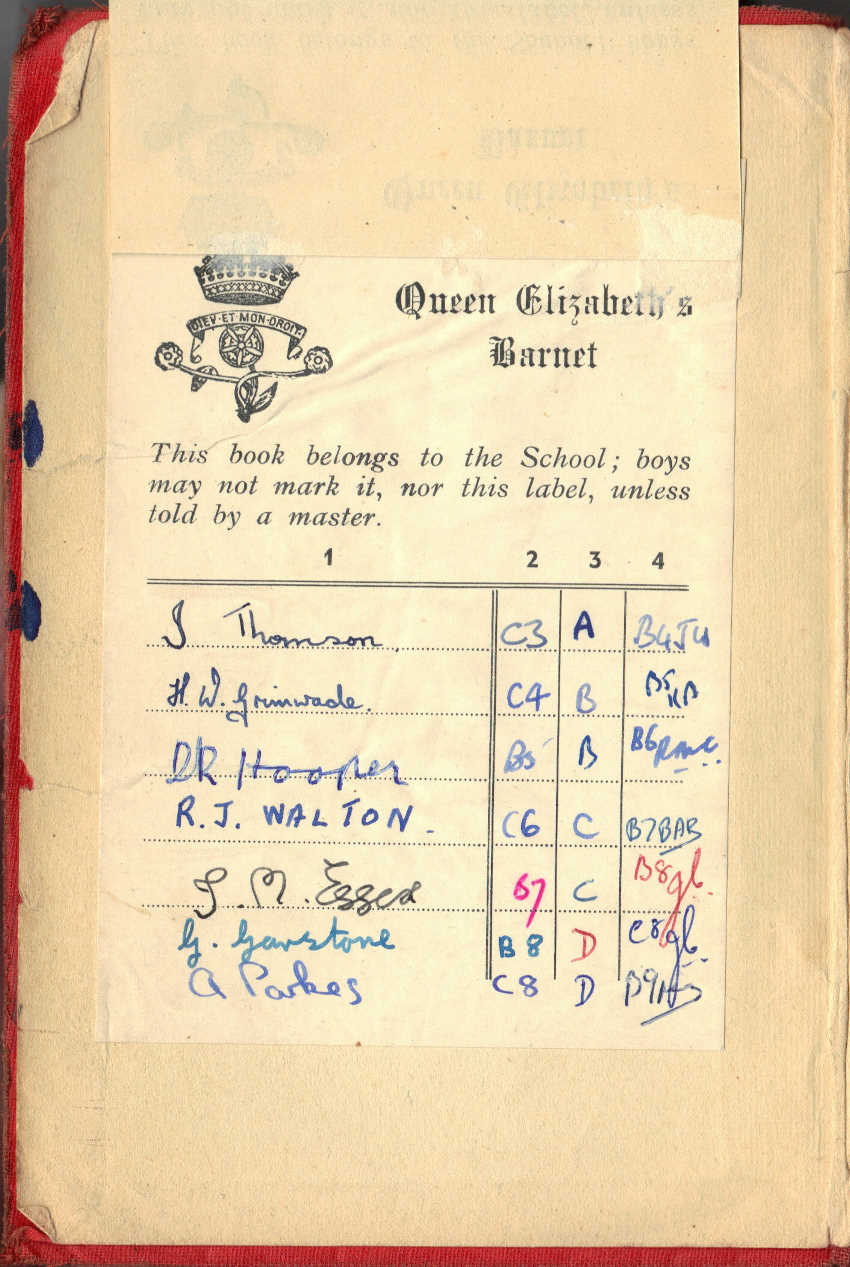 DIEV·ET MON·DROIT
Queen Elizabeth's
Barnet
This book belongs to the School; boys
may not mark it, nor this label, unless
told by a master.
1 2 3 4
J Thomson. C3 A B4JW
H. W. Grimwade. C4 B B5KB
DR Hooper B5 B B6
R. J. WALTON. C6 C B7BAB
J. M. Essex B7 C B8gb.
G. Gavestone B8 D C8gb.
A Parkes C8 D B9